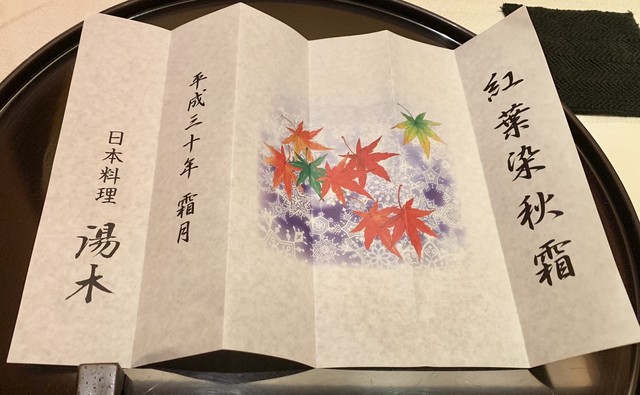 紅葉染秋霜
平成三十年 霜月
日本料理 湯木